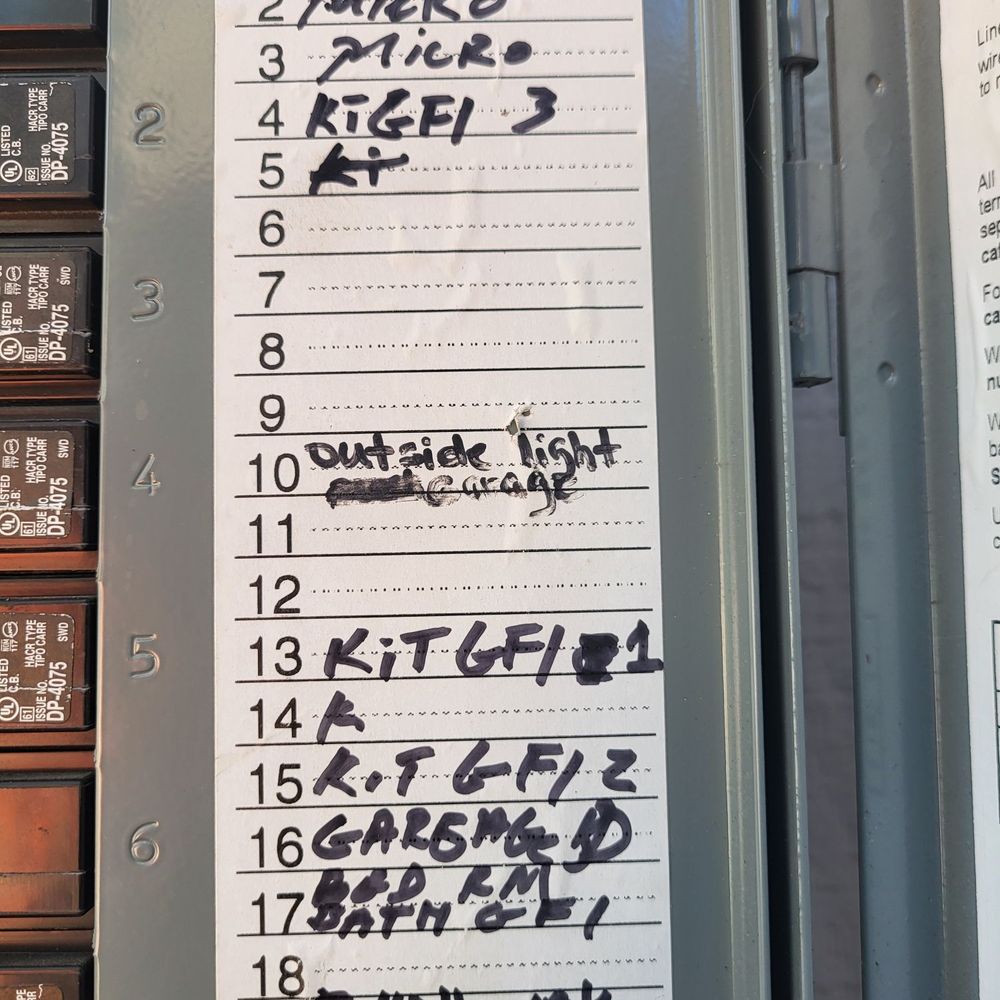 2 MICRO
3 MICRO
4 KiGFI 3
5 Ki
6
7
8
9
10 outside light
garage
11
12
13 KiT GFI 1
14 K
15 KiT GFI 2
16 GARBAGE D
17 BED RM
BATH GFI
18
2
3
4
5
6
UL LISTED C.B. HACR TYPE TIPO CARR
62 ISSUE NO. DP-4075
UL LISTED C.B. HACR TYPE TIPO CARR SWD
61 ISSUE NO. DP-4075
UL LISTED C.B. HACR TYPE TIPO CARR SWD
61 ISSUE NO. DP-4075
UL LISTED C.B. HACR TYPE TIPO CARR SWD
61 ISSUE NO. DP-4075
to
All